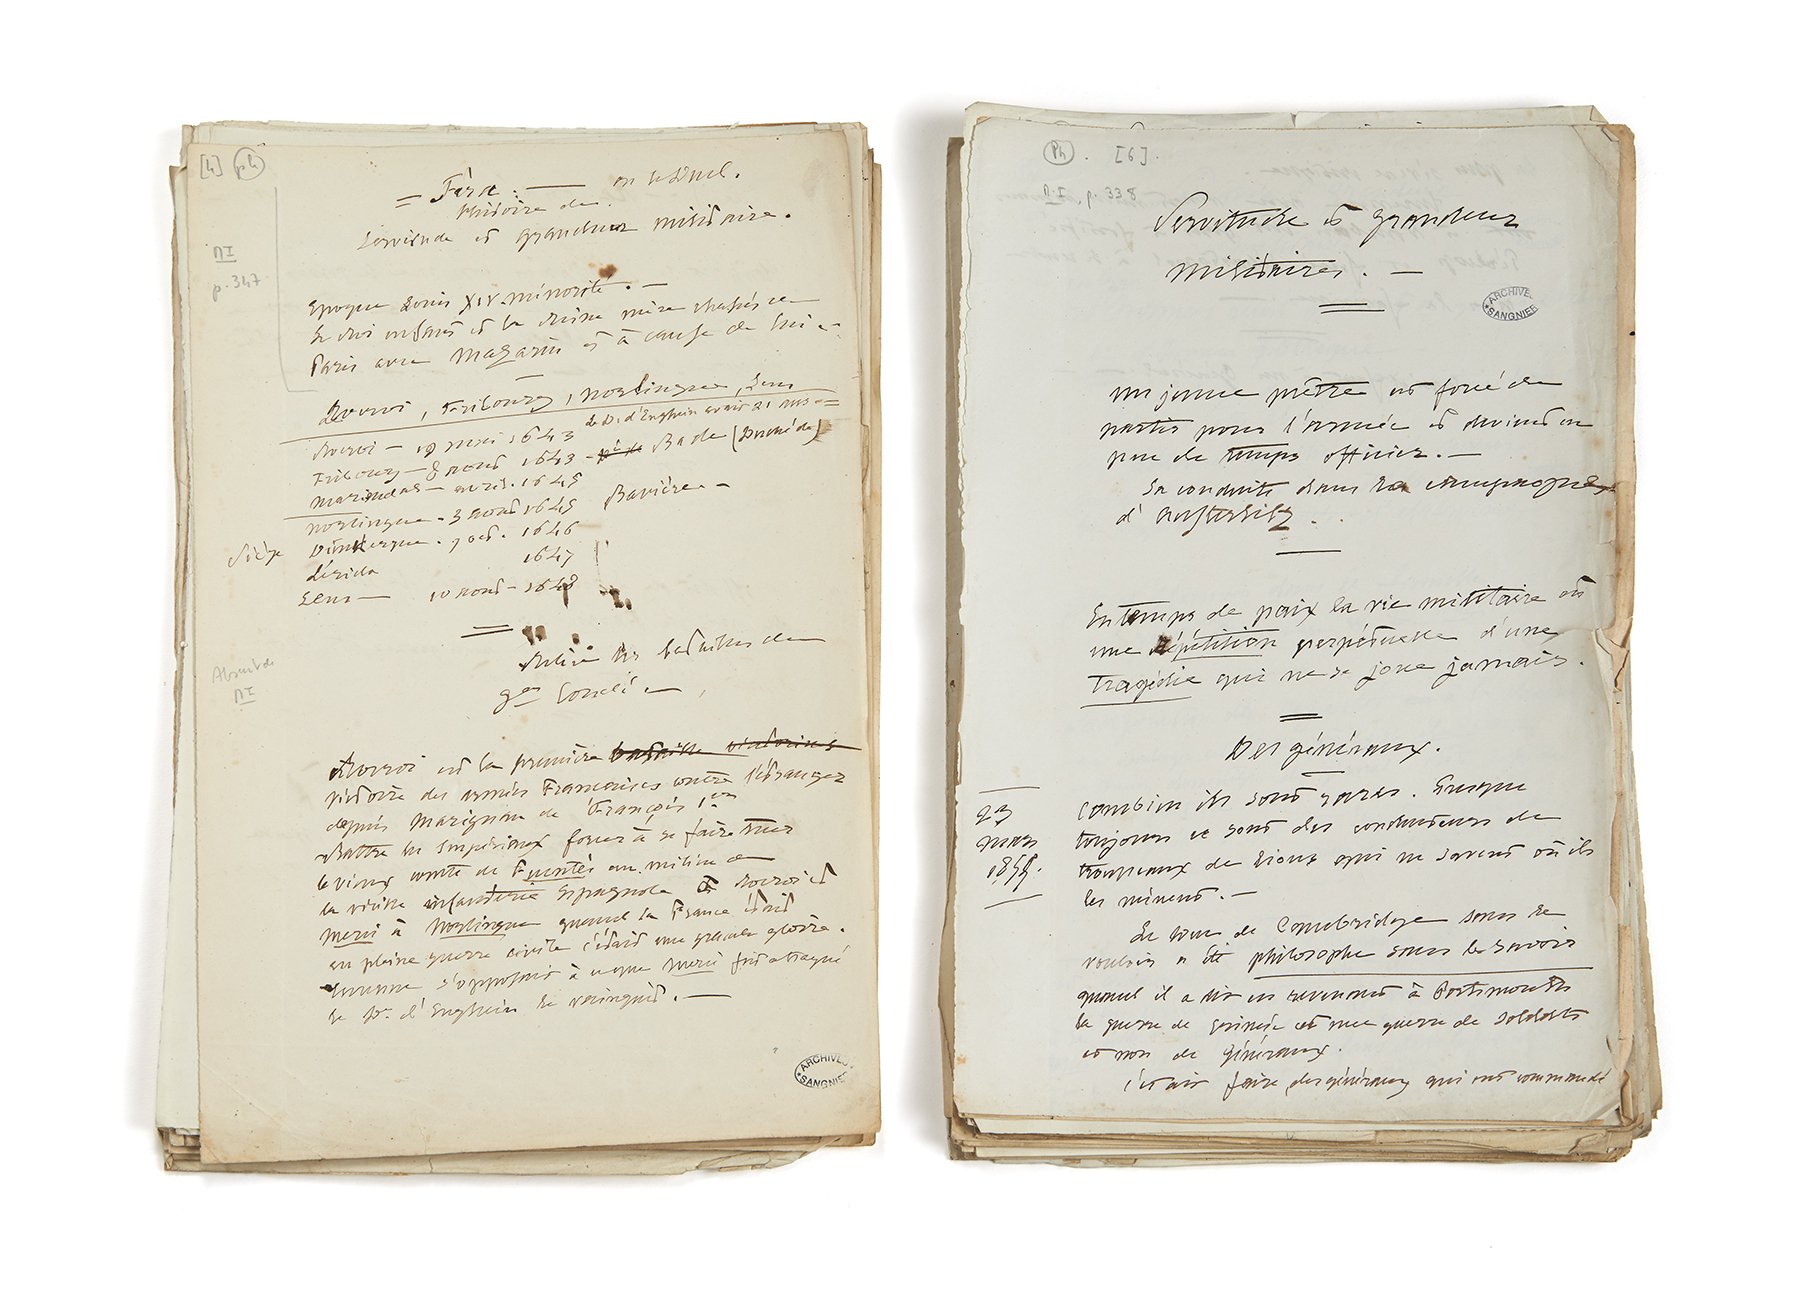 [4] ph
= Fère : —
histoire de
Servitude et grandeur militaire.
n I
p. 347
Epoque Louis XIV. minorité. —
Le Roi enfant et la Reine mère chassés de
Paris avec Mazarin et à cause de lui —
Rocroi, Fribourg, Norlingue, Lens
Rocroi — 19 mai 1643 le D. d'Enghien avait 21 ans =
Fribourg — 3 août 1643 — Bade (Duché de)
Mariendal — avril. 1645
Norlingue. 3 août 1645 Bavière —
Siège Dunkerque. 7 oct. 1646
Lérida 1647
Lens — 10 août — 1648
Absent de
n I
=
Relire les batailles de
gd Condé
Rocroi est la première bataille victorieuse
victoire des armées Françaises contre l'étranger
depuis Marignan de François 1er
Battre les Impériaux forcer à se faire tuer
le vieux comte de Fuentès au milieu de
la vieille infanterie Espagnole à Rocroi et
Merci à Norlingue quand la France était
en pleine guerre civile c'était une grande gloire.
Turenne s'opposait à ce que Merci fût attaqué
le Pce d'Enghien le vainquit. —
ARCHIVES
SANGNIER
Ph. [6].
n. I, p. 338
Servitude et grandeur
militaires. —
ARCHIVES
SANGNIER
Un jeune prêtre est forcé de
partir pour l'armée et devient en
peu de temps officier. —
Sa conduite dans la campagne
d'Austerlitz.
En temps de paix la vie militaire est
une répétition perpétuelle d'une
tragédie qui ne se joue jamais.
=
Des généraux.
23
mars
1855.
Combien ils sont rares. Presque
toujours ce sont des conducteurs de
troupeaux de Lions qui ne savent où ils
les mènent. —
Le duc de Cambridge sans le
vouloir a été philosophe sans le savoir
quand il a dit en revenant à Portsmouth
la guerre de Crimée est une guerre de soldats
et non de généraux.
C'est à faire des généraux qui ont commandé